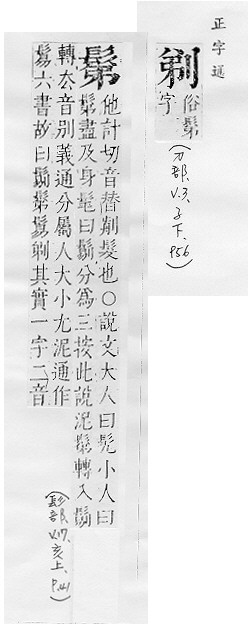 正字通
剃 俗鬀
字
(刀部、V.3、子下、P.56)
鬀 他計切音替剃髮也○說文大人曰髡小人曰
鬀盡及身毛曰鬄分為三按此說泥鬀轉入鬄
轉厺音別義通分屬人大小尤泥通作
鬄六書故曰鬄鬀髢剃其實一字二音
(髟部、V.17、亥上、P.41)